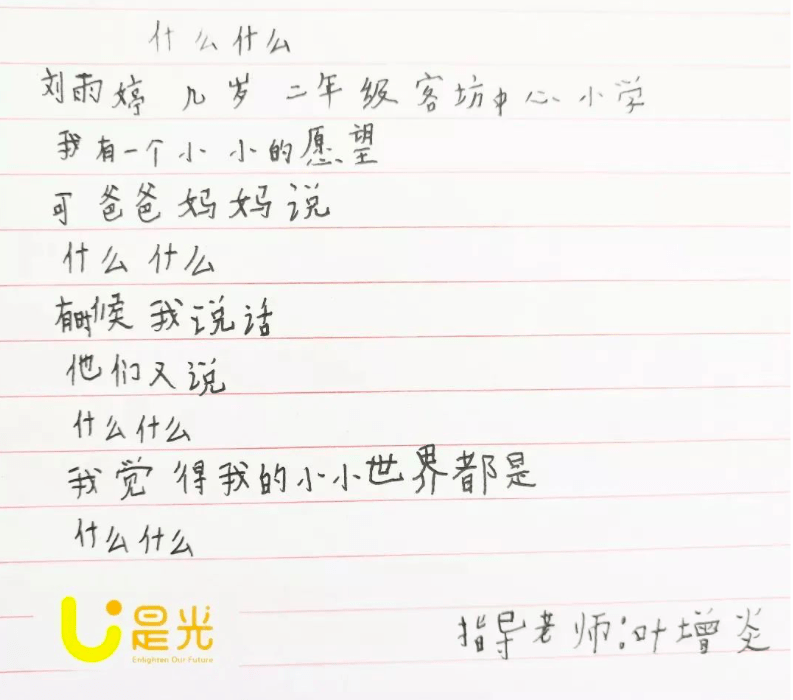 什么什么
刘雨婷 九岁 二年级 客坊中心小学
我有一个小小的愿望
可爸爸妈妈说
什么什么
有时候我说话
他们又说
什么什么
我觉得我的小小世界都是
什么什么
是光
Enlighten Our Future
指导老师:叶增炎